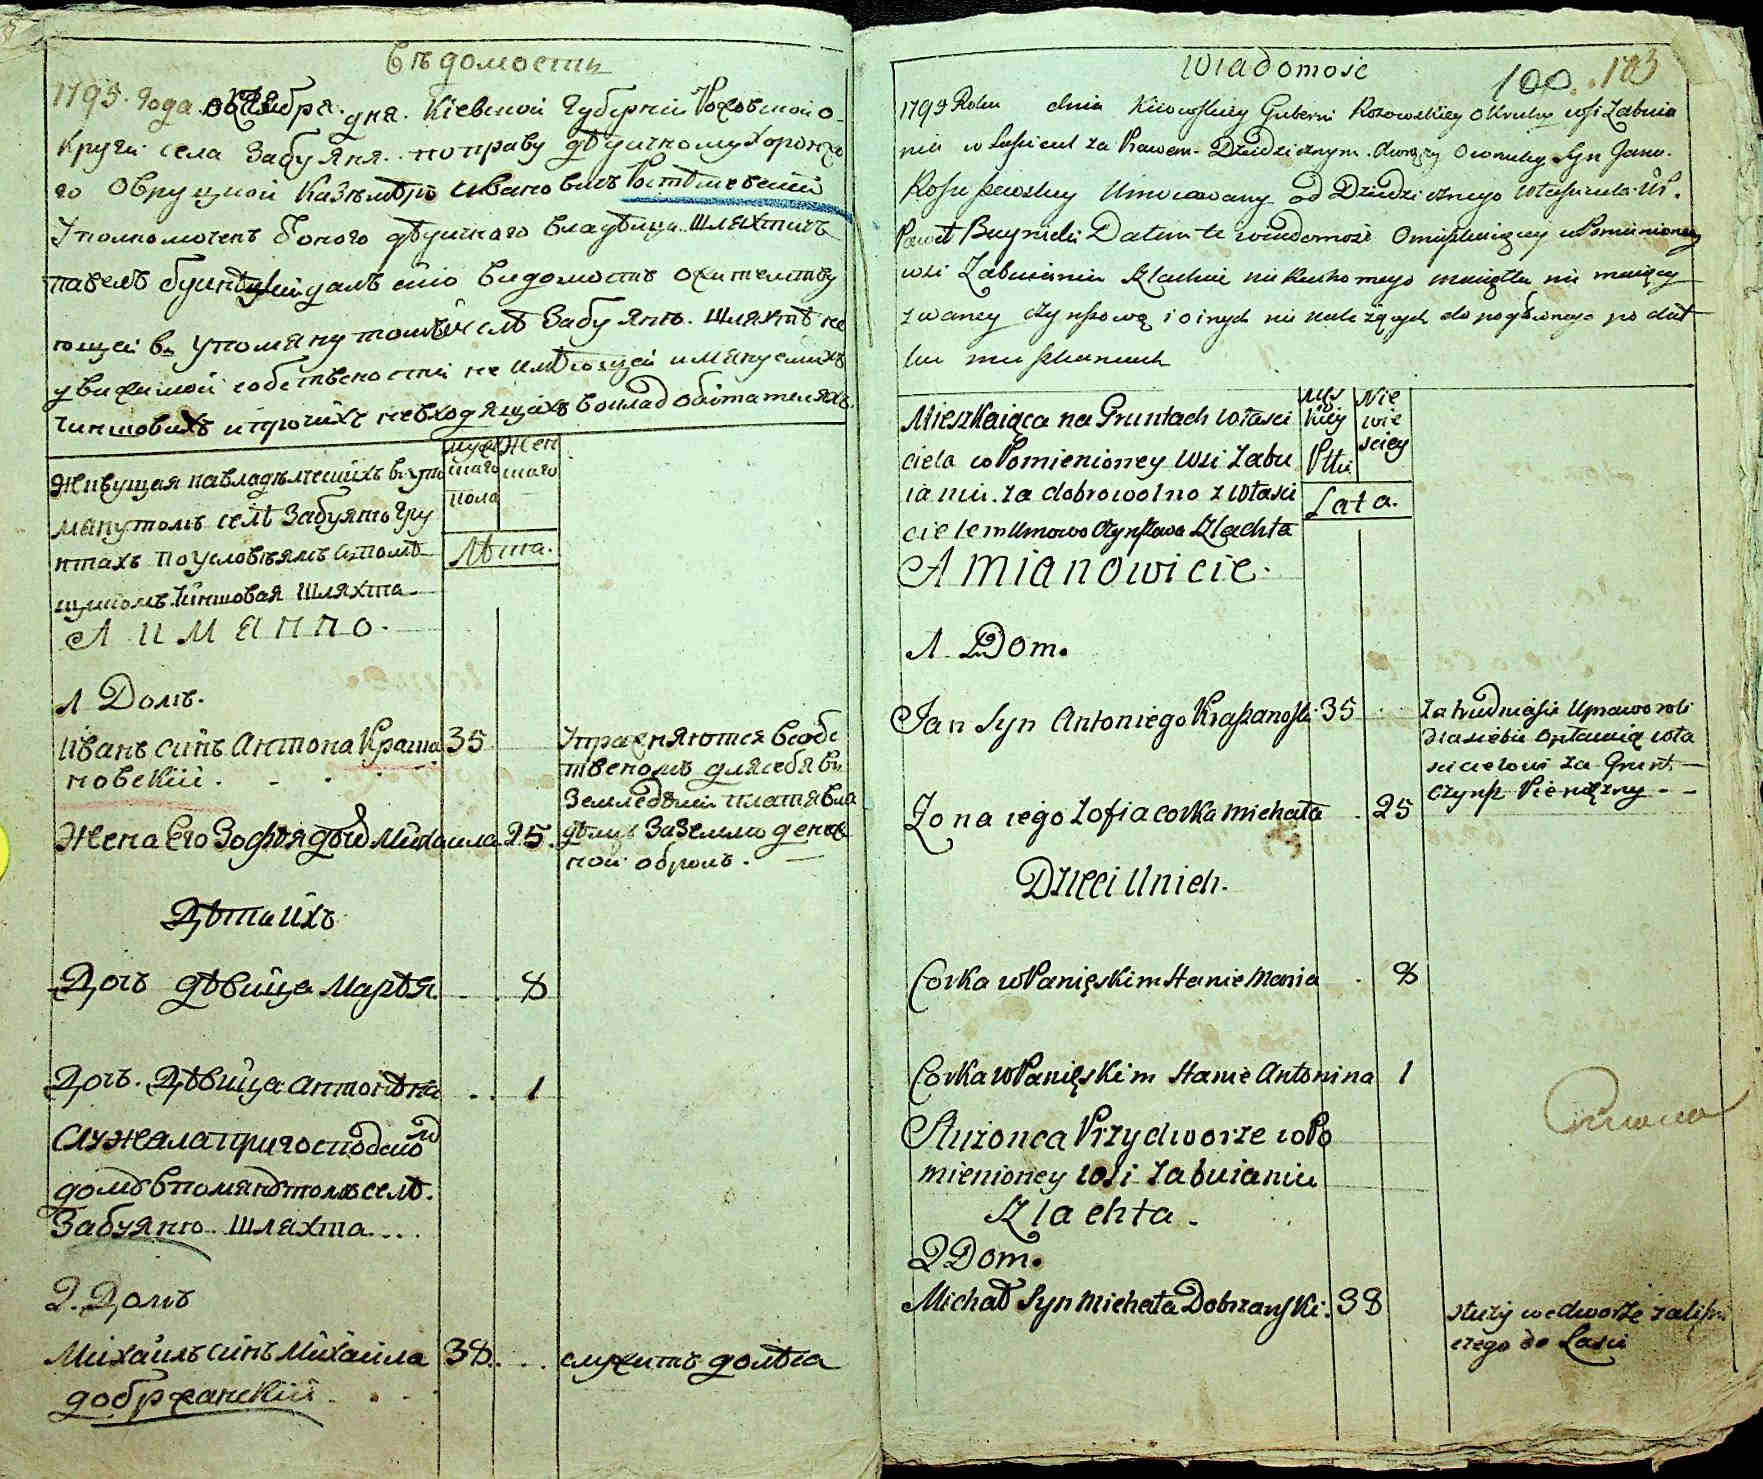 Вѣдомость
1795. года октября. дня. Кіевской Губерніи Роховской о-
круги села Забуяня. поправу дѣдичному Хоронже
го Овруцкой Казѣмѣръ Ивановичъ Ростѣшевский
Уполномоченъ дѣдичнаго владѣлца. Шляхтичъ
павелъ далъ сію видомость о жителству
ющей въ упомянутомъ селѣ Забуяню. Шляхтѣ не
движимой собствености не имѣющей имянуемихъ
чиншовихъ и прочихъ невходящихъ воклад обитателяхъ.
Живущая навладѣлческихъ вупо
мянутомъ селѣ Забуяню гру
нтахъ поусловѣямъ стомѣ
щикомъ. Чиншовая шляхта
Мужескаго пола
Женскаго
Лѣта.
А И М Я Н Н О.
1 Домъ.
Иванъ синъ Антона Краша 35
новский.
Упражняются всобс
твеномъ длясебя въ
Земледѣлии платя вла
дѣлцу заземлю денеж
ной оброкъ.
Жена Его Зофѣя дочь Михаила 25.
Дѣти ихъ
Дочъ дѣвица Марѣя. 8
Дочъ. Дѣвица Антонѣна 1
Служаща при господском
домѣ впомянѣтомъ селѣ.
Забуяню шляхта...
2. Домъ
Михаилъ синъ Михаила 38. служитъ
добржанский
Wiadomość
100 103
1795 Roku dnia Kiiowskiey Guberni Rozowskiey Okruhy wsi Zabuia
nia w Prawem Dziedzicznym Owruckiy Syn Jana.
Umocowany od Dziedzicznego Własciciela
Paweł Buynicki Datem te wiadomosć O mieszkaiącey w Pomienioney
wsi Zabuianiu Szlachcie nie Ruchomego maiątku nie maiącey
zwaney Czynszową i oinych nie należących do pogłównego podat
ku mieszkancach
Mieszkaiąca na Gruntach Własci
ciela w Pomienioney Wsi Zabu
ianiu. za dobrowolno z Własci
cielem Umowo Czynszowa Szlachta
Męs
kiey
Płci
Nie
wie
sciey
Lata.
A Mianowicie.
1 Dom.
Jan Syn Antoniego Kraszanoski 35
Zatrudniasie Uprawo roli
dla siebie opłacaią wła
scicielowi za Grunt
Czynsz Pieniężny - -
Zona iego Zofia corka Michała 25
Dzieci Unich.
Corka w Panięskim Stanie Maria 8
Corka w Panięskim Stanie Antonina 1
Służonca Przy dworze w Po
mienioney Wsi Zabuianiu
Szlachta.
2 Dom.
Michał Syn Michała Dobrzanski. 38
służy we dworze zaliesni
czego do Lasu